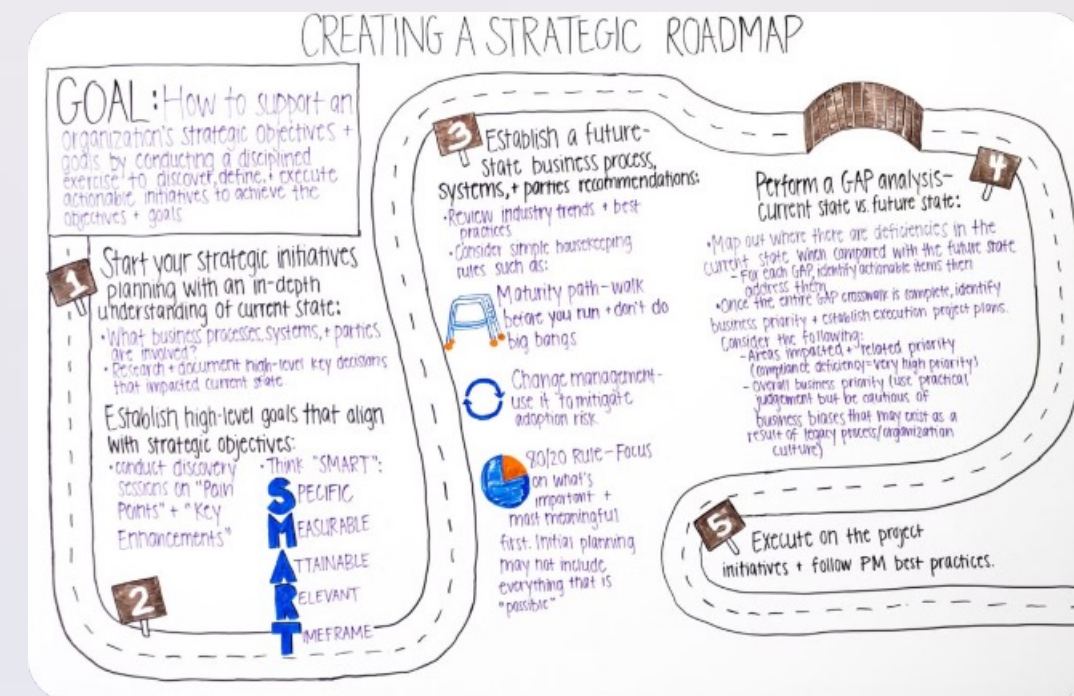 CREATING A STRATEGIC ROADMAP
GOAL: How to support an
organization's strategic objectives +
goals by conducting a disciplined
exercise to discover, define, + execute
actionable initiatives to achieve the
objectives + goals
1
Start your strategic initiatives
planning with an in-depth
understanding of current state:
• What business processes, systems, + parties
are involved?
• Research + document high-level key decisions
that impacted current state
2
Establish high-level goals that align
with strategic objectives:
• conduct discovery
sessions on "Pain
Points" + "Key
Enhancements"
• Think "SMART":
SPECIFIC
MEASURABLE
ATTAINABLE
RELEVANT
TIMEFRAME
3
Establish a future-
state business process,
systems, + parties recommendations:
• Review industry trends + best
practices
• Consider simple housekeeping
rules such as:
Maturity path - walk
before you run + don't do
big bangs
Change management -
use it to mitigate
adoption risk
80/20 Rule - Focus
on what's
important +
most meaningful
first. Initial planning
may not include
everything that is
"possible"
4
Perform a GAP analysis -
Current state vs. future state:
• Map out where there are deficiencies in the
current state when compared with the future state
- For each GAP, identify actionable items then
address them
• Once the entire GAP crosswalk is complete, identify
business priority + establish execution project plans.
Consider the following:
- Areas impacted + related priority
(compliance deficiency = very high priority)
- overall business priority (use practical
judgement but be cautious of
business biases that may exist as a
result of legacy process/organization
culture)
5
Execute on the project
initiatives + follow PM best practices.